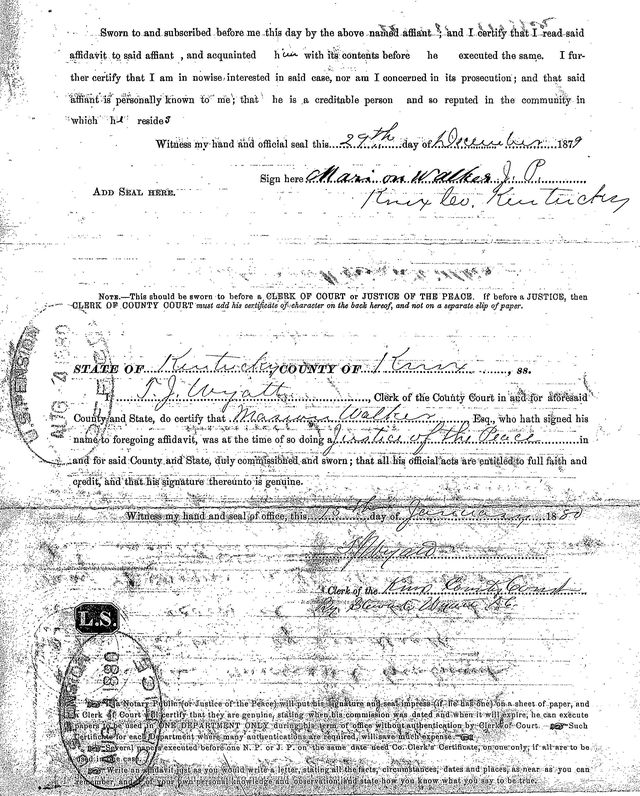 Sworn to and subscribed before me this day by the above named affiant , and I certify that I read said
affidavit to said affiant , and acquainted him with its contents before he executed the same. I fur-
ther certify that I am in nowise interested in said case, nor am I concerned in its prosecution; and that said
affiant is personally known to me; that he is a creditable person and so reputed in the community in
which he resides
Witness my hand and official seal this 29th day of December 1879
Sign here Marion Walker J. P.
ADD SEAL HERE.
Knox Co. Kentucky
NOTE.—This should be sworn to before a CLERK OF COURT or JUSTICE OF THE PEACE. If before a JUSTICE, then
CLERK OF COUNTY COURT must add his certificate of character on the back hereof, and not on a separate slip of paper.
U.S. PENSION OFFICE
AUG 2 1880
STATE OF Kentucky, COUNTY OF Knox, ss.
I T. J. Wyatt, Clerk of the County Court in and for aforesaid
County and State, do certify that Marion Walker Esq., who hath signed his
name to foregoing affidavit, was at the time of so doing a Justice of the Peace in
and for said County and State, duly commissioned and sworn; that all his official acts are entitled to full faith and
credit, and that his signature thereunto is genuine.
Witness my hand and seal of office, this 13th day of January 1880
Clerk of the Knox County Court
By D.C.
L.S.
1880
a Notary Public (or Justice of the Peace) will put his signature and seal-impress (if he has one) on a sheet of paper, and
a Clerk of Court will certify that they are genuine, stating when his commission was dated and when it will expire, he can execute
papers to be used in ONE DEPARTMENT ONLY during his term of office without authentication by Clerk of Court. Such
Certificate for each Department where many authentications are required, will save much expense.
Several papers executed before one N. P. or J. P. on the same date need Co. Clerk's Certificate, on one only, if all are to be
used in one case.
Write an affidavit just as you would write a letter, stating all the facts, circumstances, dates and places, as near as you can
remember, and of your own personal knowledge and observation, and state how you know what you say to be true.